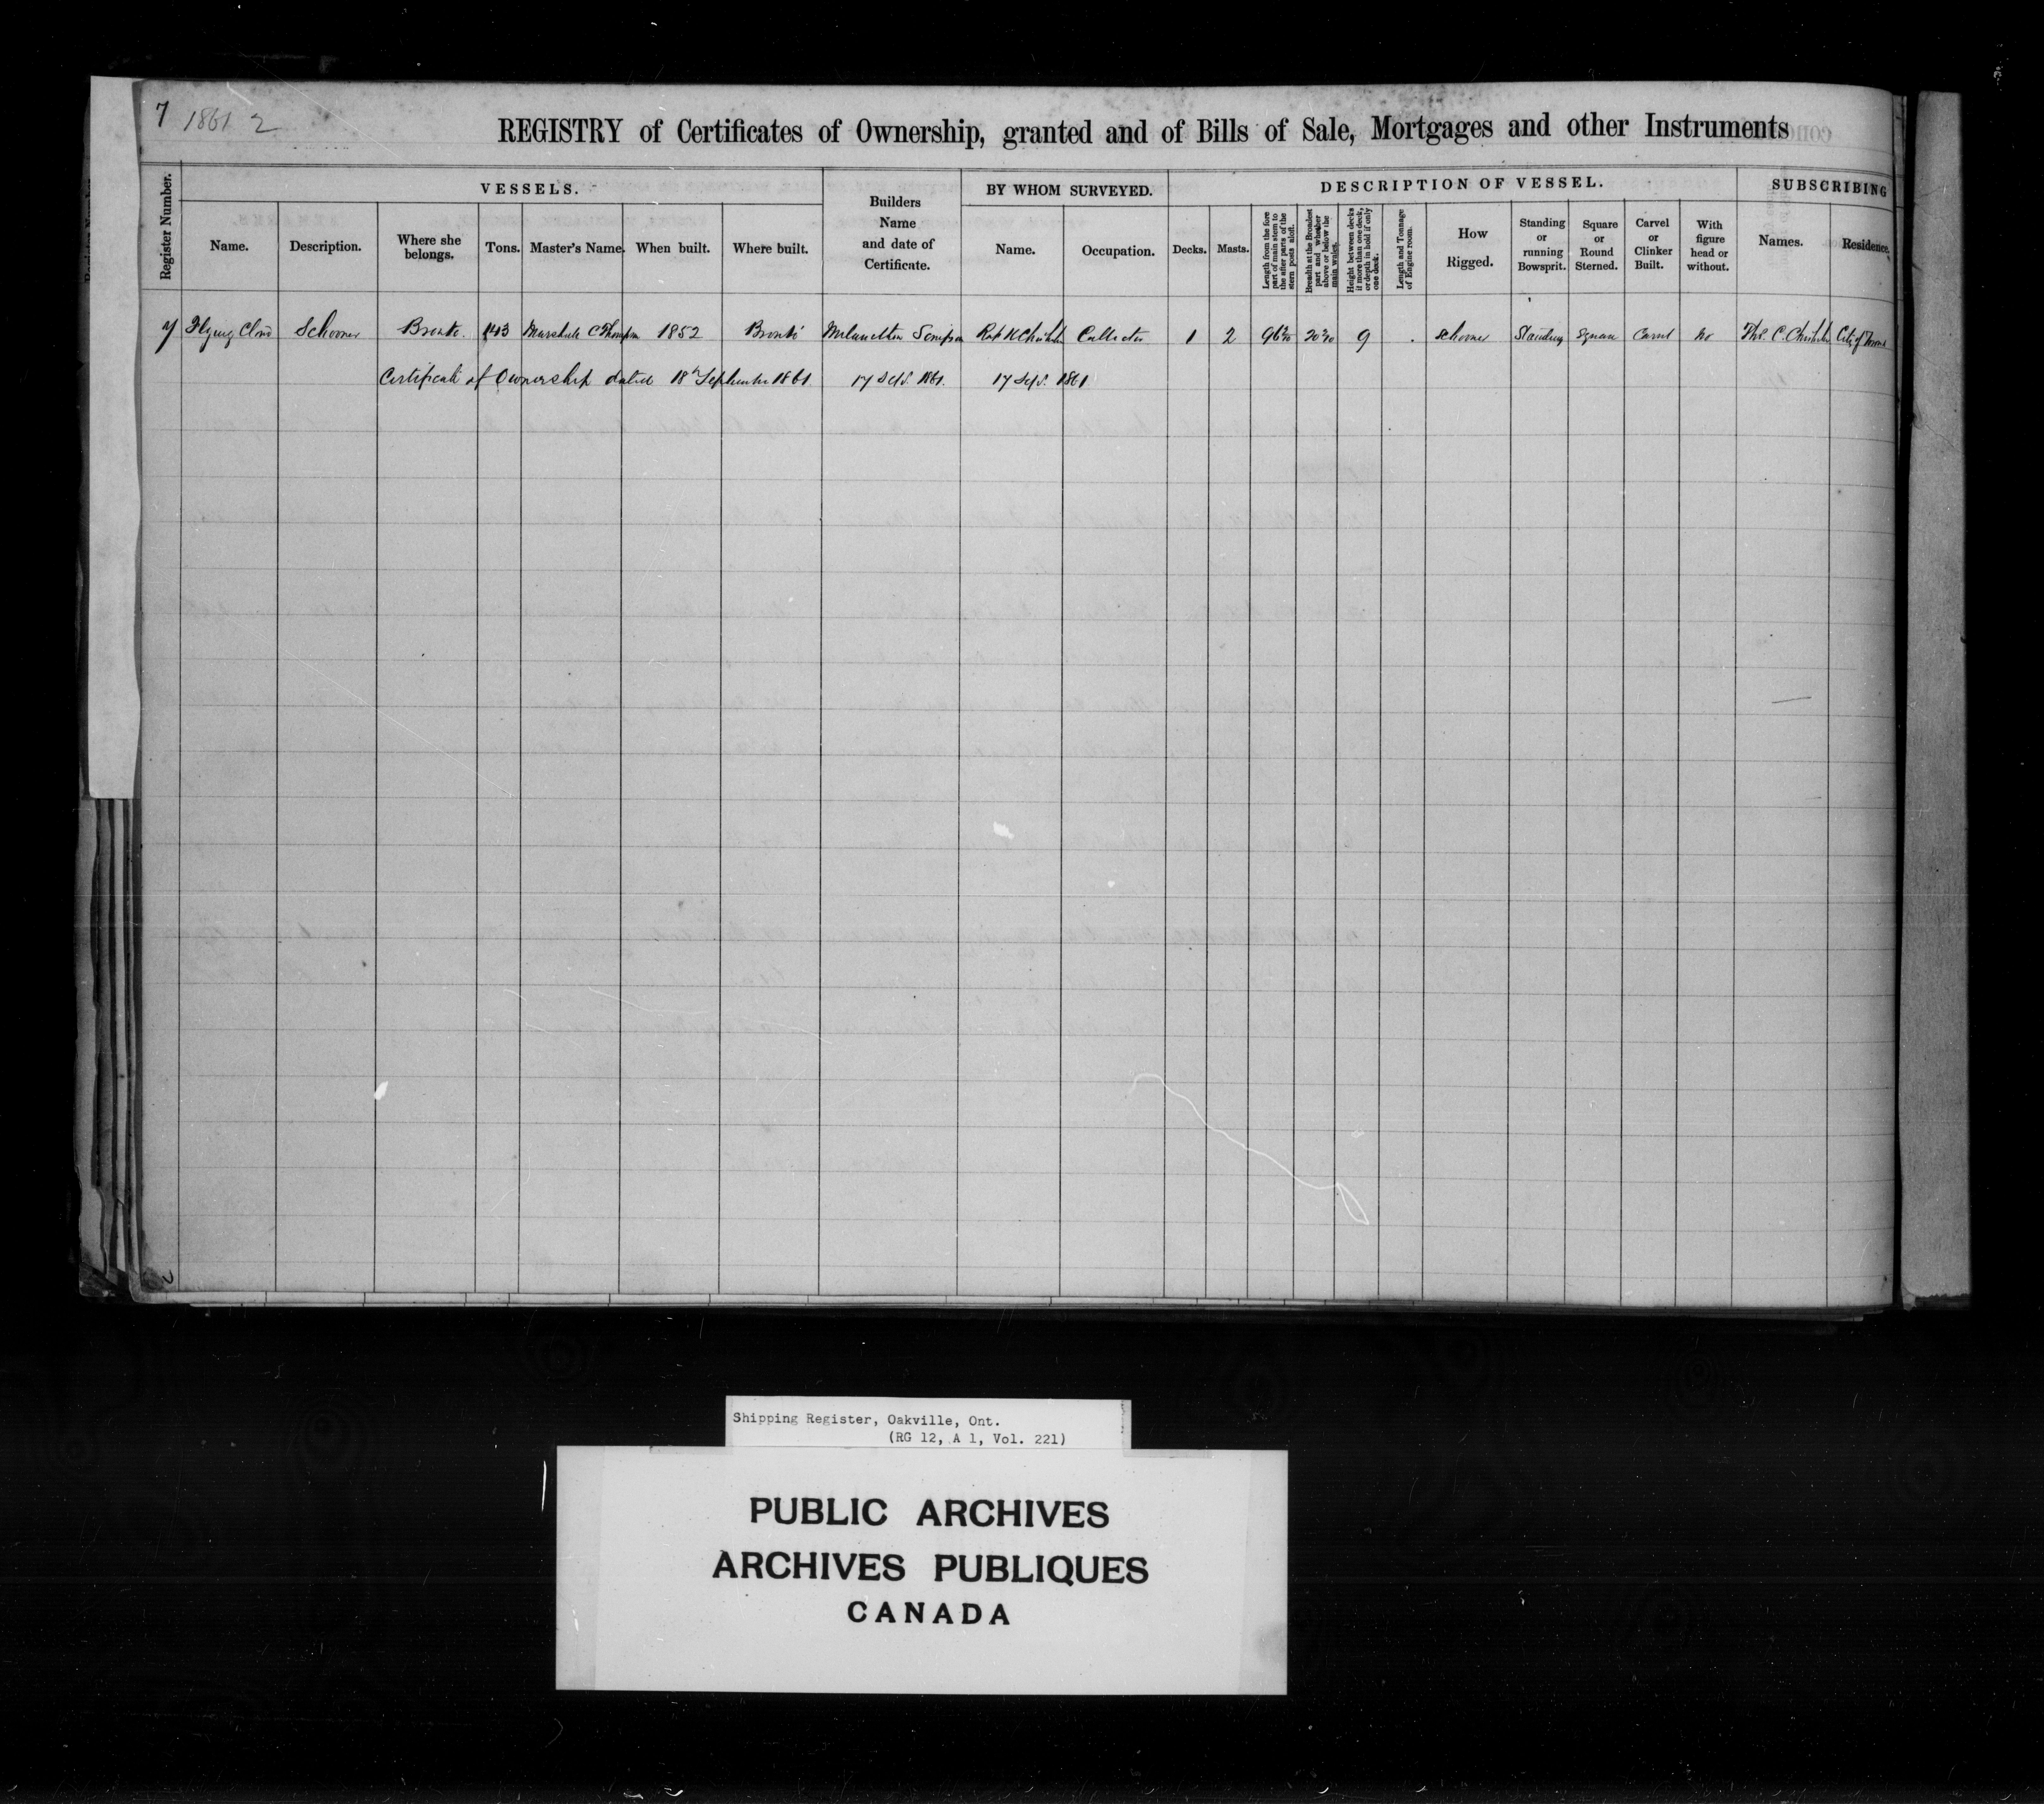 7 1861 2
REGISTRY of Certificates of Ownership, granted and of Bills of Sale, Mortgages and other Instruments
VESSELS.
BY WHOM SURVEYED.
DESCRIPTION OF VESSEL.
SUBSCRIBING
Register Number.
Name.
Description.
Where she belongs.
Tons.
Master's Name.
When built.
Where built.
Builders Name and date of Certificate.
Name.
Occupation.
Decks.
Masts.
Length from the fore part of main stem to the after parts of the stern posts aloft.
Breadth at the Broadest part and whether above or below the main wales.
Height between decks if more than one deck, or depth in hold if only one deck.
Length and Tonnage of Engine room.
How Rigged.
Standing or running Bowsprit.
Square or Round Sterned.
Carvel or Clinker Built.
With figure head or without.
Names.
Residence.
7 Flying Cloud Schooner Bronte. 143 Marshall C Thompson 1852 Bronte Melancthon Simpson Robt K Chisholm Collector 1 2 9 Schooner Standing Square Carvel No Thos. C. Chisholm City of Toronto
Certificate of Ownership dated 18th September 1861 17 Sept. 1861. 17 Sept. 1861
Shipping Register, Oakville, Ont.
(RG 12, A 1, Vol. 221)
PUBLIC ARCHIVES
ARCHIVES PUBLIQUES
CANADA